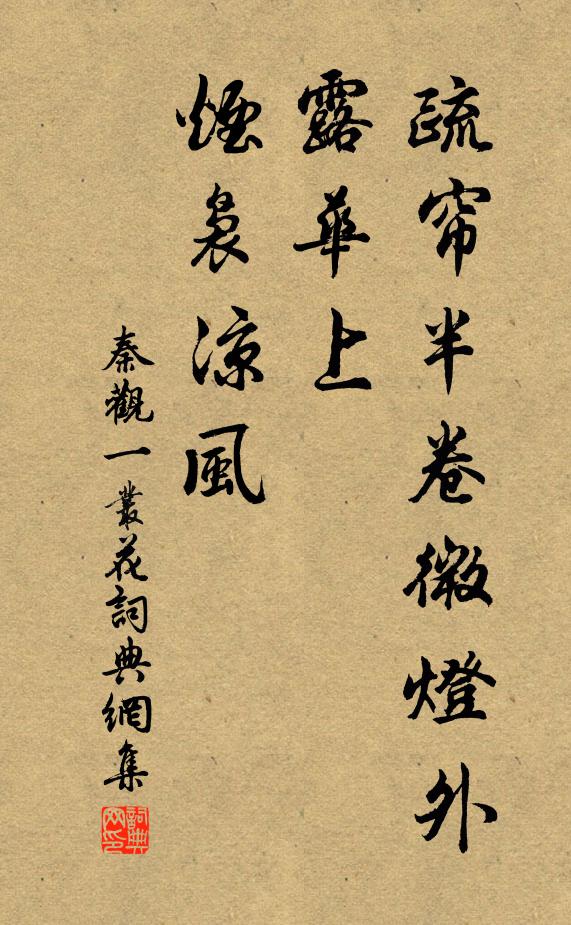 疏帘半卷微燈外
露華上
煙裊涼風
秦觀一叢花詞典網集
詞典网印